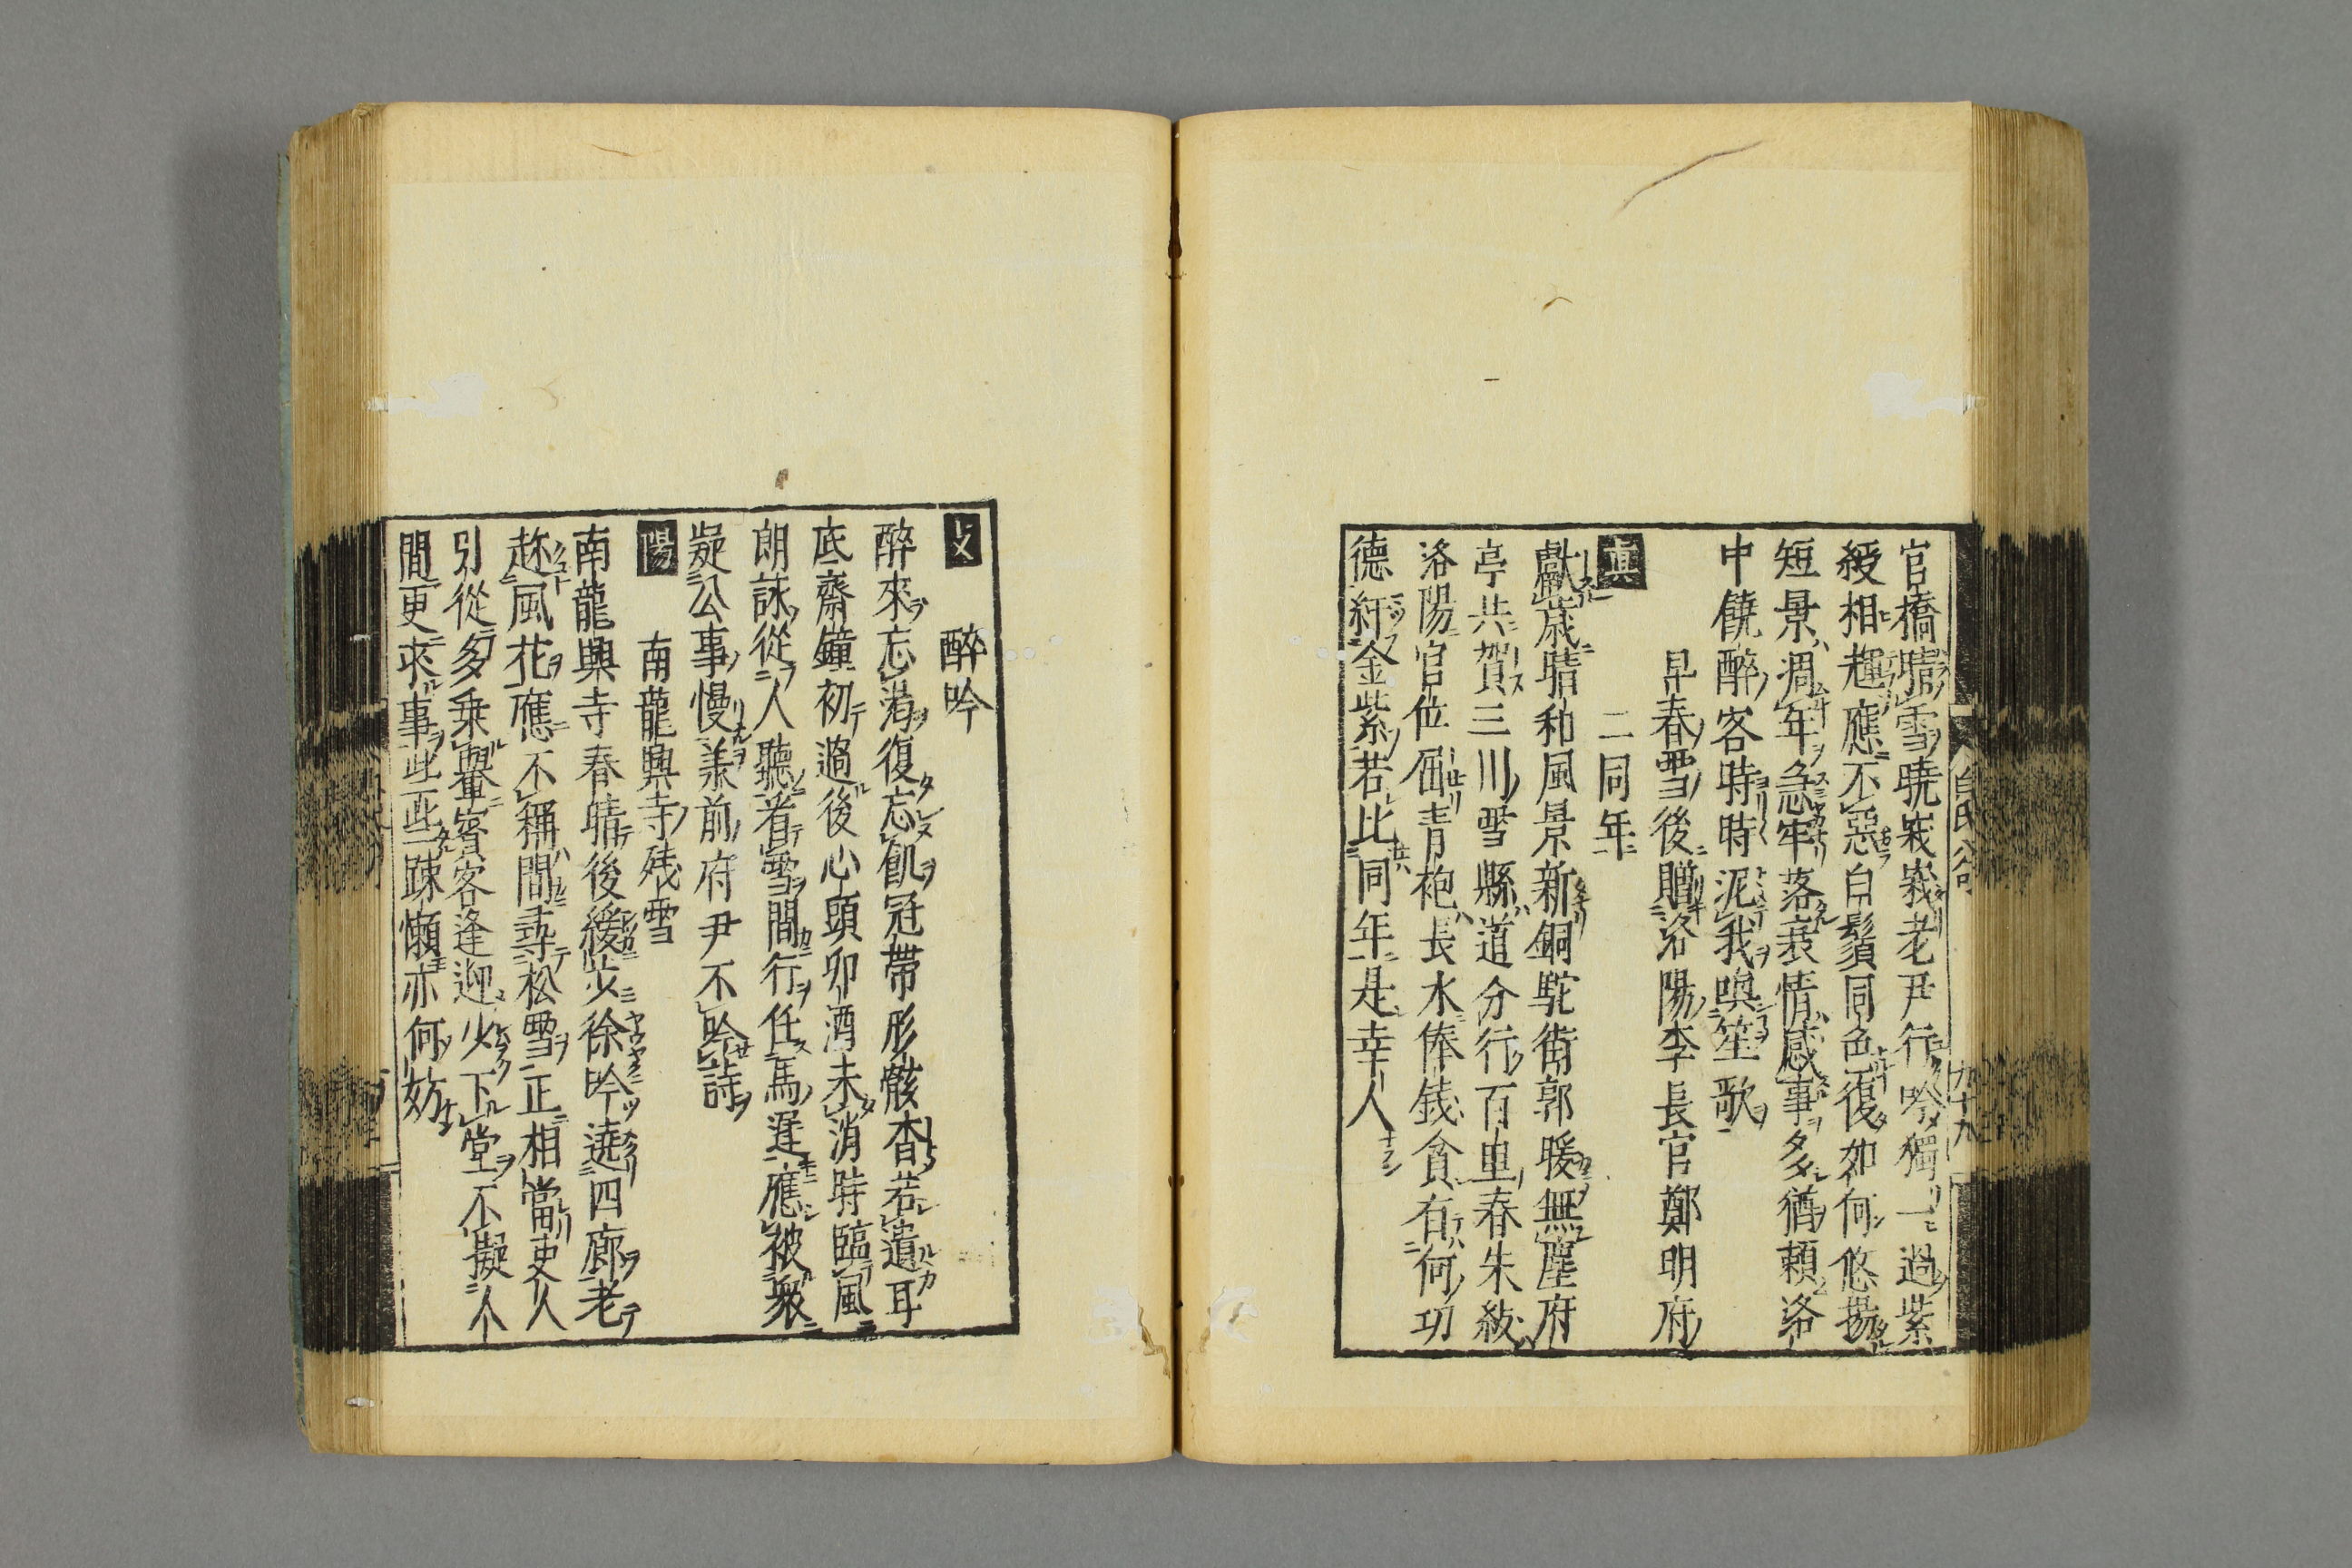 官橋晴雪曉峩峩老尹行吟獨一過紫
綬相輝應不惡白鬚同色復如何悠揚
短景凋年急牢落衰情感事多猶頼洛
中饒醉客時時泥我喚笙歌
早春雪後贈洛陽李長官鄭明府
二同年
真
獻歲晴和風景新銅駝街郭暖無塵府
亭共賀三川雪縣道分行百里春朱紱
洛陽官位屈青袍長水俸錢貧有何功
德紆金紫若比同年是幸人
醉吟
醉來忘渇復忘飢冠帶形骸杳若遺耳
底齋鐘初過後心頭卯酒未消時臨風
朗詠從人聽看雪閒行任馬遲應被衆
疑公事慢羕前府尹不吟詩
陽
南龍興寺殘雪
南龍興寺春晴後緩歩徐吟遶四廊老
趂風花應不稱閒尋松雪正相當吏人
引從多乗輿賓客逢迎少下堂不擬人
間更求事些些踈懶亦何妨